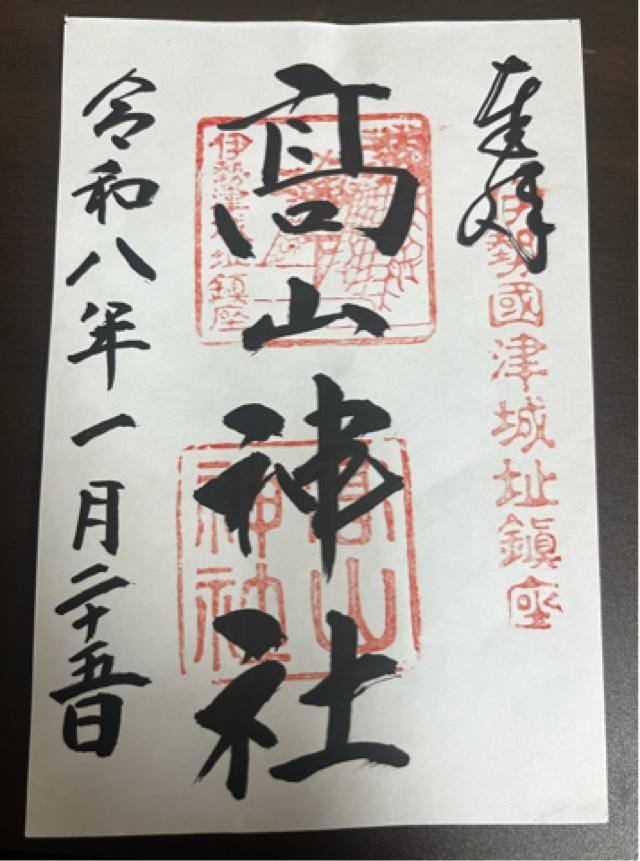 奉拝
伊勢國津城址鎮座
高山神社
伊勢津城址鎮座
高山
神社
令和八年一月二十五日